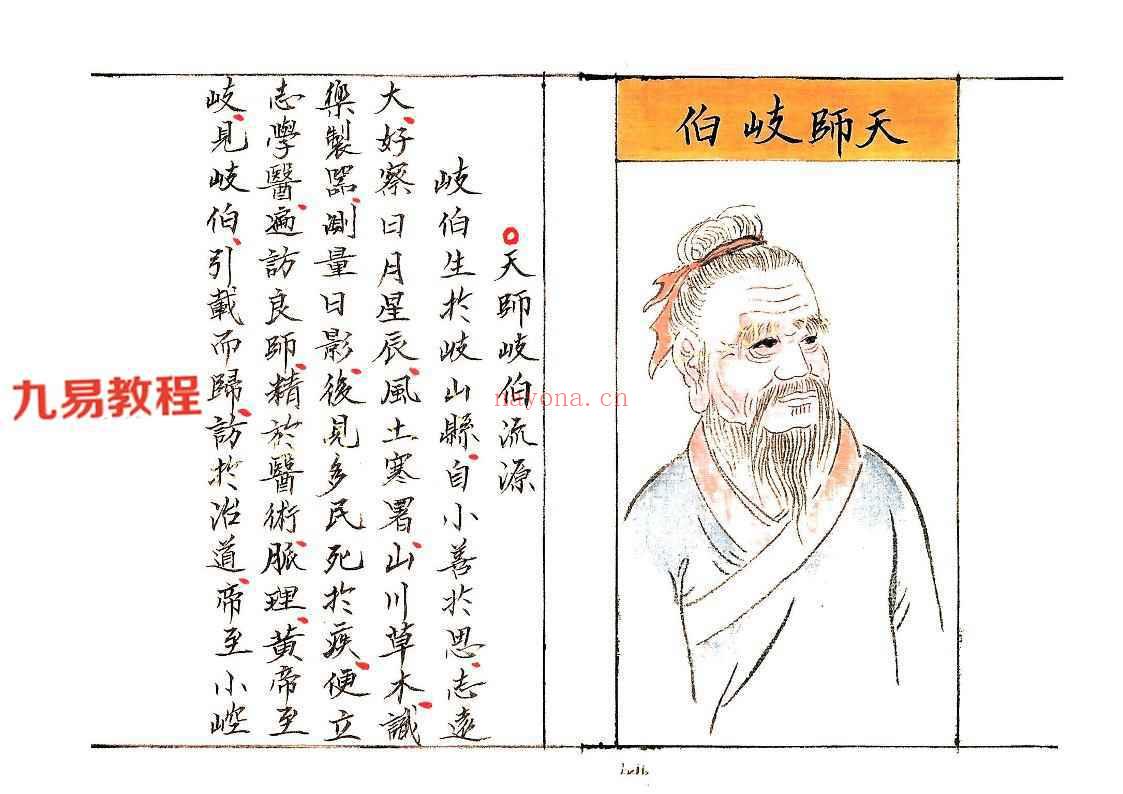 天師岐伯
○天師岐伯流源
岐伯生於岐山縣、自小善於思、志遠
大、好察日月星辰、風土寒署、山川草木、識
樂製器、測量日影、後見多民死於疾、便立
志學醫、遍訪良師、精於醫術、脈理、黃帝至
岐、見岐伯、引載而歸、訪於治道、帝至小崆
九易教程
nayona.cn